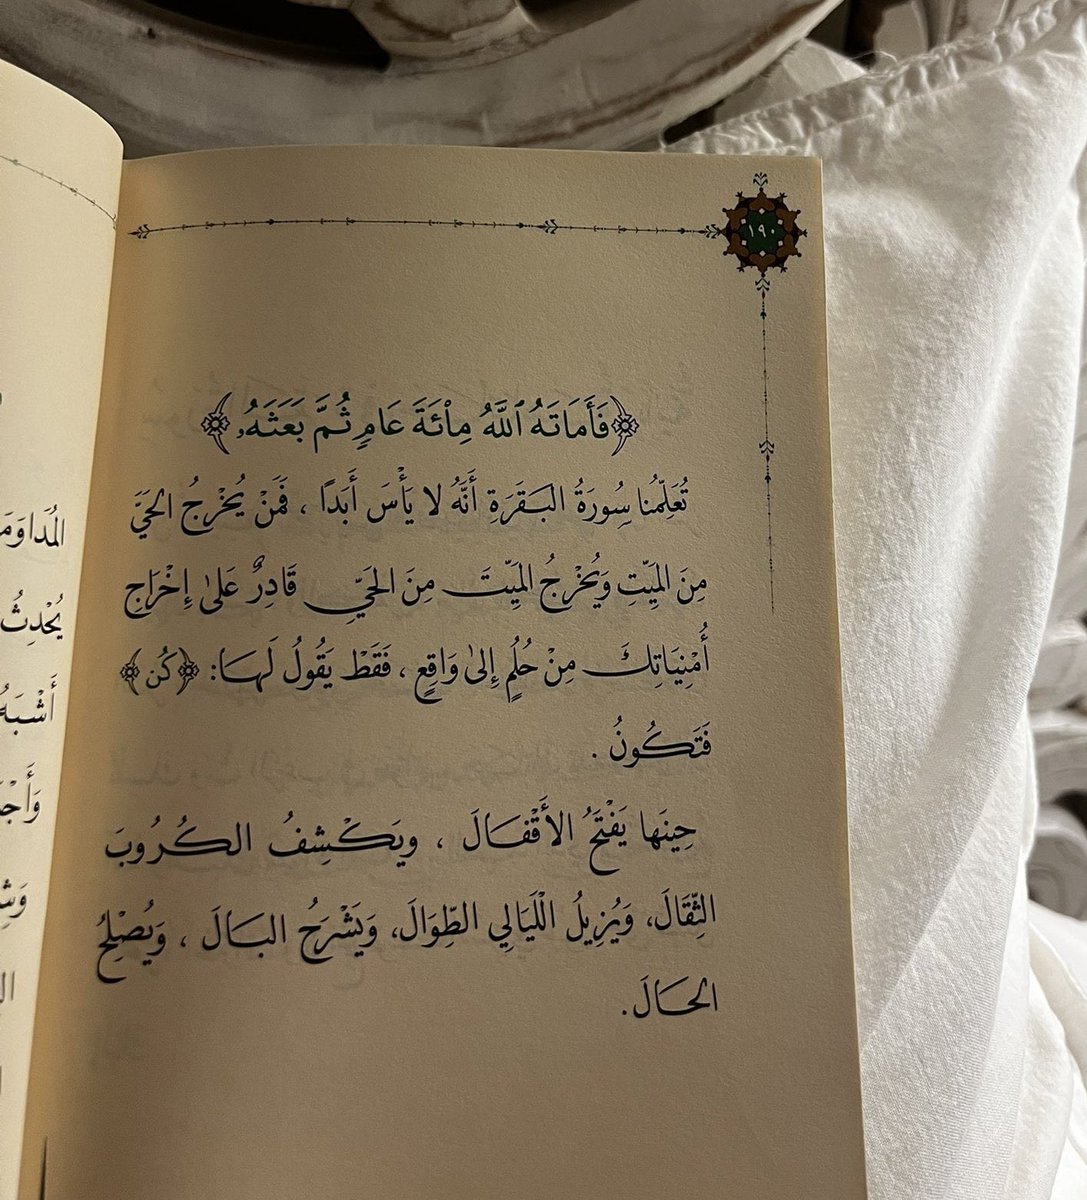 ١٩٠
﴿فَأَمَاتَهُ ٱللَّهُ مِا۟ئَةَ عَامٍ ثُمَّ بَعَثَهُۥ﴾
تُعَلِّمُنا سُورَةُ البَقَرَةِ أَنَّهُ لا يَأْسَ أَبَدًا ، فَمَنْ يُخْرِجُ الحَيَّ
مِنَ المَيِّتِ وَيُخْرِجُ المَيِّتَ مِنَ الحَيِّ قَادِرٌ عَلىٰ إِخْرَاجِ
أُمْنِيَاتِكَ مِنْ حُلُمٍ إِلىٰ وَاقِعٍ ، فَقَطْ يَقُولُ لَهَا: ﴿كُن﴾
فَتَكُونُ .
حِينَها يَفْتَحُ الأَقْفَالَ ، ويَكْشِفُ الكُرُوبَ
الثِّقَالَ، وَيُزِيلُ اللَّيَالِي الطِّوَالَ، وَيَشْرَحُ البَالَ ، وَيُصْلِحُ
الحَالَ.
المُداوَمَ
يُحْدِثُ
أَشْبَهُ